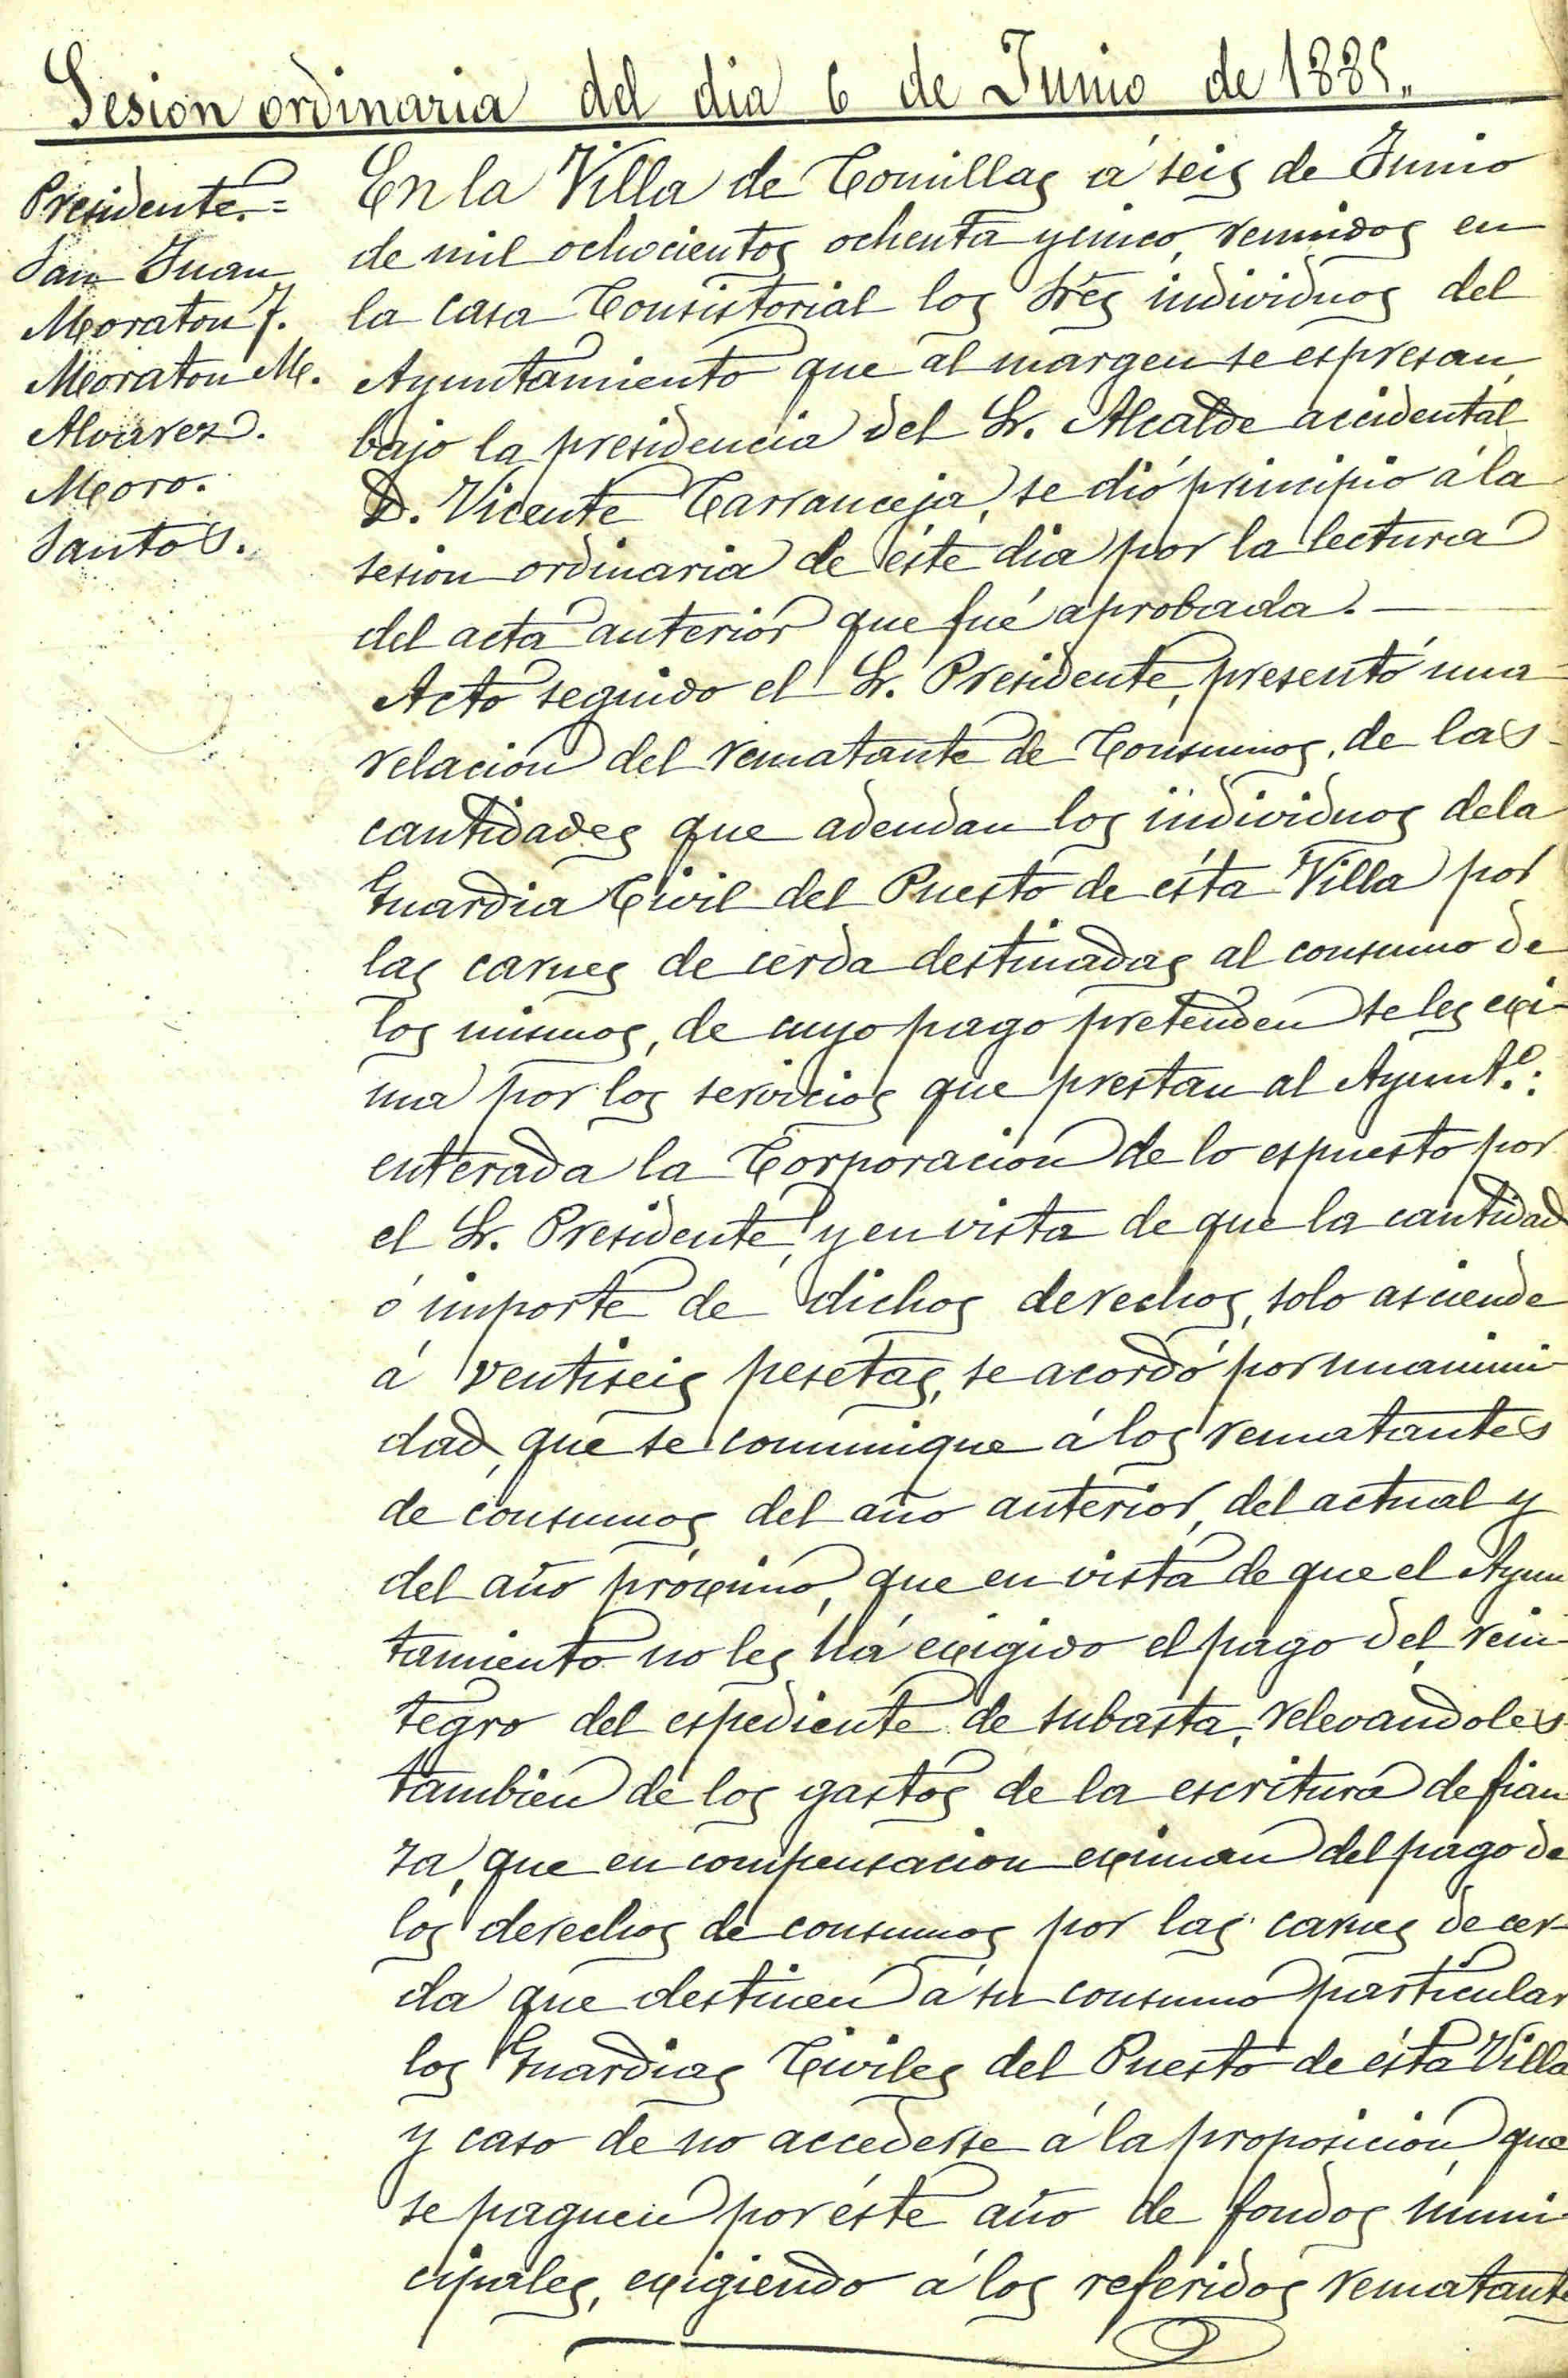 Sesion ordinaria del dia 6 de Junio de 1885.,
Presidente.=
San Juan
Moraton J.
Moraton M.
Alvarez.
Moro.
Santos.
En la Villa de Comillas á seis de Junio
de mil ochocientos ochenta y cinco, reunidos en
la casa Consistorial los Sres individuos del
Ayuntamiento que al margen se espresan,
bajo la presidencia del Sr. Alcalde accidental
D. Vicente Carranceja, se dió principio á la
sesion ordinaria de éste dia por la lectura
del acta anterior que fué aprobada.
Acto seguido el Sr. Presidente, presentó una
relacion del rematante de Consumos, de las
cantidades que adeudan los individuos dela
Guardia Civil del Puesto de ésta Villa por
las carnes de cerda destinadas al consumo de
los mismos, de cuyo pago pretenden se les exi-
ma por los servicios que prestan al Ayunt.º:
enterada la Corporacion de lo espuesto por
el Sr. Presidente, y en vista de que la cantidad
ó importe de dichos derechos, solo asciende
á ventiseis pesetas, se acordó por unanimi-
dad, que se comunique á los rematantes
de consumos del año anterior, del actual y
del año próximo, que en vista de que el Ayun
tamiento no les há exigido el pago del rein-
tegro del espediente de subasta, relevandoles
tambien de los gastos de la escritura de fian
za, que en compensacion eximan del pago de
los derechos de consumos por las carnes de cer-
da que destinen á su consumo particular
los Guardias Civiles del Puesto de ésta Villa
y caso de no accederse á la proposicion, que
se paguen por éste año de fondos muni-
cipales, exigiendo á los referidos rematante